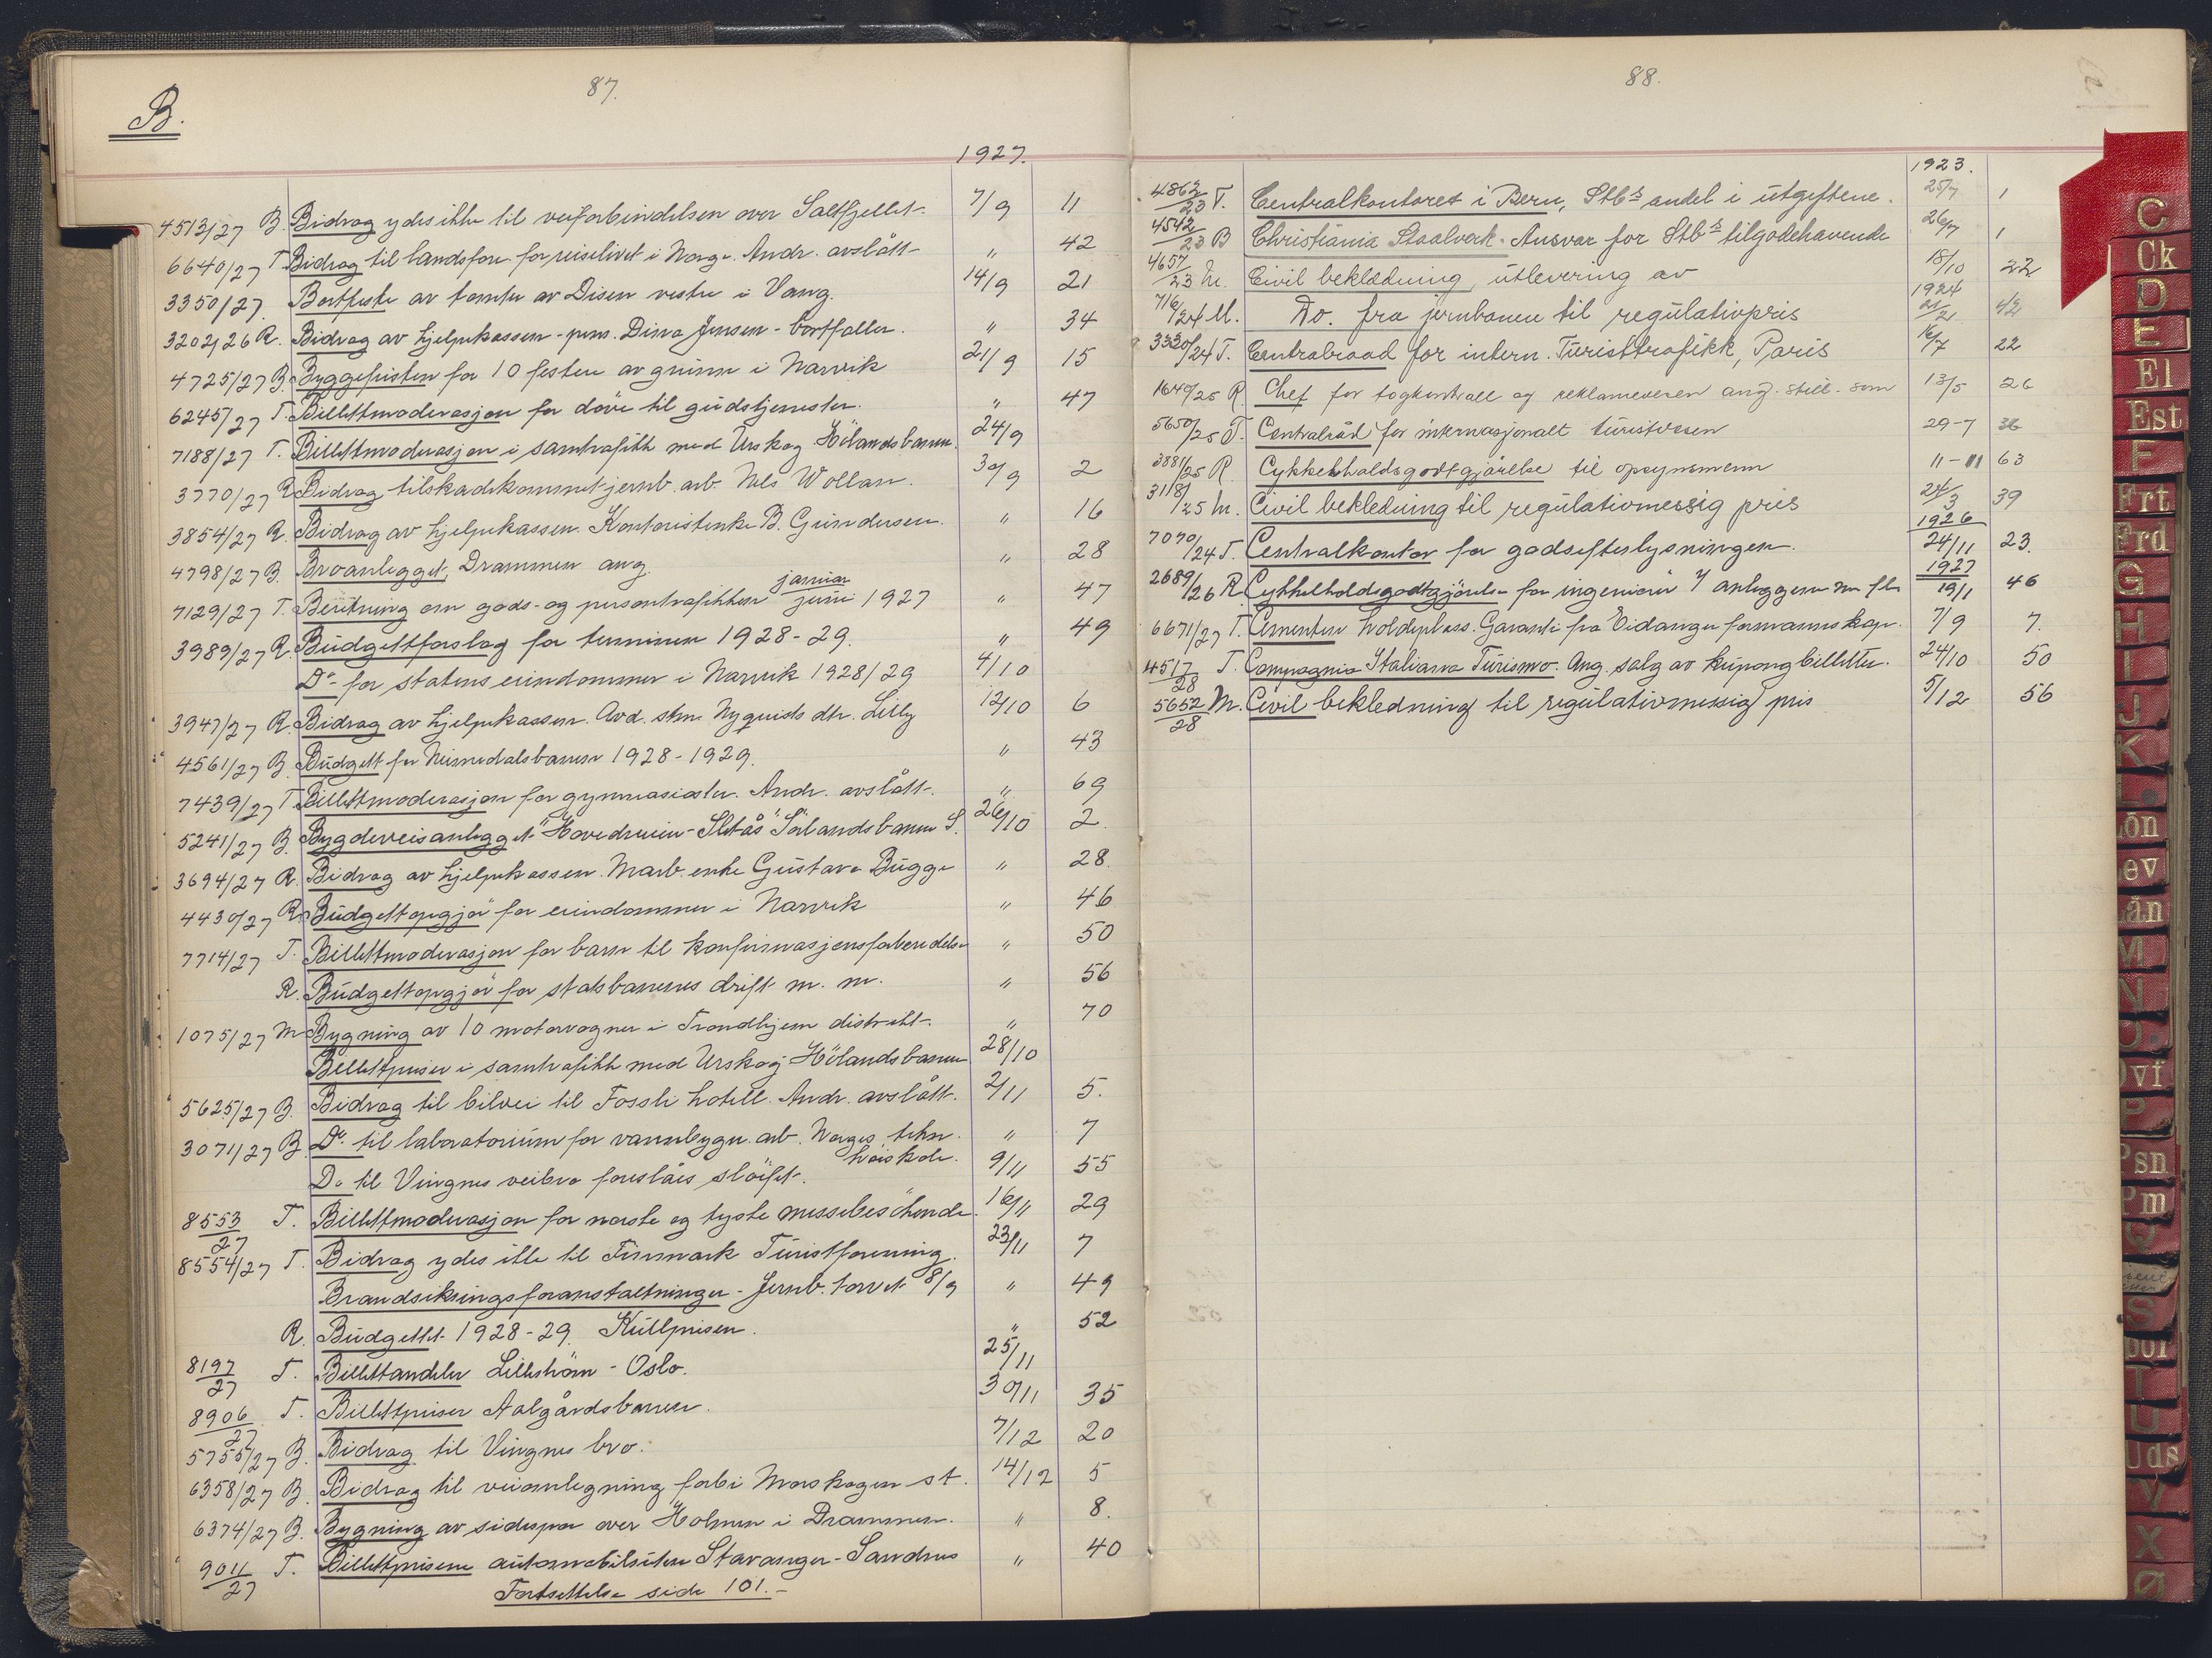 87.
B.
1927.
4513/27 B. Bidrag ydes ikke til veiforbindelsen over Saltfjellet. 7/9 11
6640/27 T. Bidrag til landsforen. for reiselivet i Norge. Andr. avslått " 42
3350/27. Bortfeste av tomter av Disen vestre i Vang. 14/9 21
3202/26 R. Bidrag av hjelpekassen - pens. Dina Jensen - bortfaller. " 34
4725/27 B. Byggefristen for 10 festere av grunn i Narvik 21/9 15
6245/27 T. Billettmoderasjon for döve til gudstjenester. " 47
7188/27 T. Billettmoderasjon i samtrafikk med Urskog Hölandsbanen. 24/9
3770/27 R. Bidrag tilskadekommet jernb. arb. Nels Wollan. 30/9 2
3854/27 R. Bidrag av hjelpekassen. Kontoristenke B. Gundersen. " 16
4798/27 B. Broanlegget, Drammen ang. " 28
7129/27 T. Beretning om gods- og persontrafikken januar juni 1927 " 47
3989/27 R. Budgettforslag for terminen 1928-29. " 49
Do- for statens eiendommer i Narvik 1928/29 4/10
3947/27 R. Bidrag av hjelpekassen. Avd. stm. Nyquists dtr. Lilly 12/10 6
4561/27 B. Budgett for Neimedalsbanen 1928-1929. " 43
7439/27 T. Billettmoderasjon for gymnasiaster. Andr. avslått. " 69
5241/27 B. Bygdeveisanlegget "Hovedveien - Sletås" Sörlandsbanen S. 26/10 2.
3694/27 R. Bidrag av hjelpekassen. Marb. enke Gustava Bugge " 28.
4430/27 R. Budgettopgjör for eiendommer i Narvik " 46
7714/27 T. Billettmoderasjon for barn til konfirmasjonsforberedelse " 50
R. Budgettopgjör for statsbanenes drift m. m. " 56
1075/27 M. Bygning av 10 motorvogner i Trondhjem distrikt. " 70
Billettpriser i samtrafikk med Urskog Hölandsbanen 28/10
5625/27 B. Bidrag til bilvei til Fossli hotell. Andr. avslått. 2/11 5.
3071/27 B. Do. til laboratorium for vannbygn. arb. Norges tekn. " 7
höiskole.
Do til Vingnes veibro foreslåes slöifet. 9/11 55
8553/27 T. Billettmoderasjon for norske og tyske messebesökende. 16/11 29
8554/27 T. Bidrag ydes ikke til Finnmark Turistforening. 23/11 7
Brandsikringsforanstaltninger - Jernb. torvet 8/9 " 49
R. Budgettet 1928-29. Kullprisen. " 52
8197/27 T. Billettandeler Lilleström - Oslo. 25/11
8906/27 T. Billettpriser Aalgårdsbanen. 30/11 35
5755/27 B. Bidrag til Vingnes bro. 7/12 20
6358/27 B. Bidrag til veiomlegning forbi Morskogen st. 14/12 5
6374/27 B. Bygning av sidespor over Holmen i Drammen. " 8.
9011/27 T. Billettprisene automobilruten Stavanger - Sandnes " 40
Fortsettelse side 101.-
88.
1923.
4862/23 T. Centralkontoret i Bern, Stbs andel i utgiftene. 25/7 1
4542/23 B Christiania Staalverk. Ansvar for Stbs tilgodehavende 26/7 1
4657/23 M. Civil beklædning, utlevering av 18/10 22
1924
716/24 M. Do. fra jernbanen til regulativpris 21/2 42
3320/24 T. Centralraad for intern. Turisttrafikk, Paris 16/7 22
1640/25 R. Chef for togkontroll og reklamevesen ang. still. som 13/5 26
5650/25 T. Centralråd for internasjonalt turistvesen 29-7 36
3881/25 R Cykkelholdsgodtgjörelse til opsynsmenn 11-11 63
3118/25 M. Civil bekledning til regulativmessig pris 24/3 39
1926
7070/24 T. Centralkontor for godsefterlysningen. 24/11 23.
1927
2689/26 R. Cykkelholdsgodtgjörelse for ingeniörer v/ anleggene m. fl. 19/1 46
6671/27 T. Cementen Voldsplass. Garanti fra Eidanger formannskap. 7/9 7.
4517/28 T. Compagnia Italiana Turismo. Ang. salg av kupongbilletter. 24/10 50
5652/28 M. Civil bekledning til regulativmessig pris 5/12 56
C
Ck
D
E
El
Est
F
Frt
Frd
G
H
I
J
K
L
Lön
Lev
Lån
M
N
O
P
Psn
Pm
Q
S
T
U
Uds
V
X
Ø